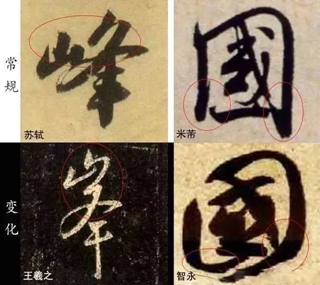 常规
峰
苏轼
國
米芾
变化
峯
王羲之
國
智永